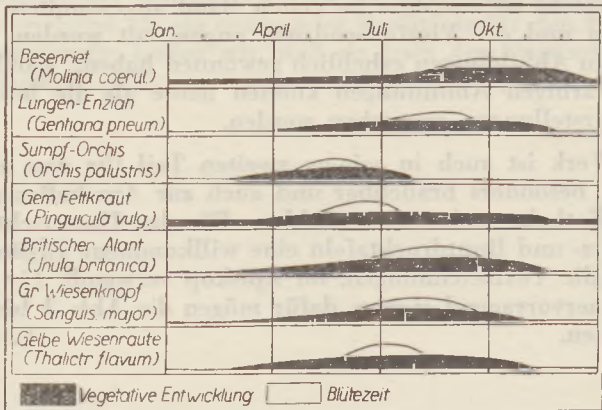 Jan. April Juli Okt.
Besenriet
(Molinia coerul.)
Lungen-Enzian
(Gentiana pneum.)
Sumpf-Orchis
(Orchis palustris)
Gem Fettkraut
(Pinguicula vulg.)
Britischer Alant
(Jnula britanica)
Gr Wiesenknopf
(Sanguis major)
Gelbe Wiesenraute
(Thalictr flavum)
Vegetative Entwicklung Blütezeit